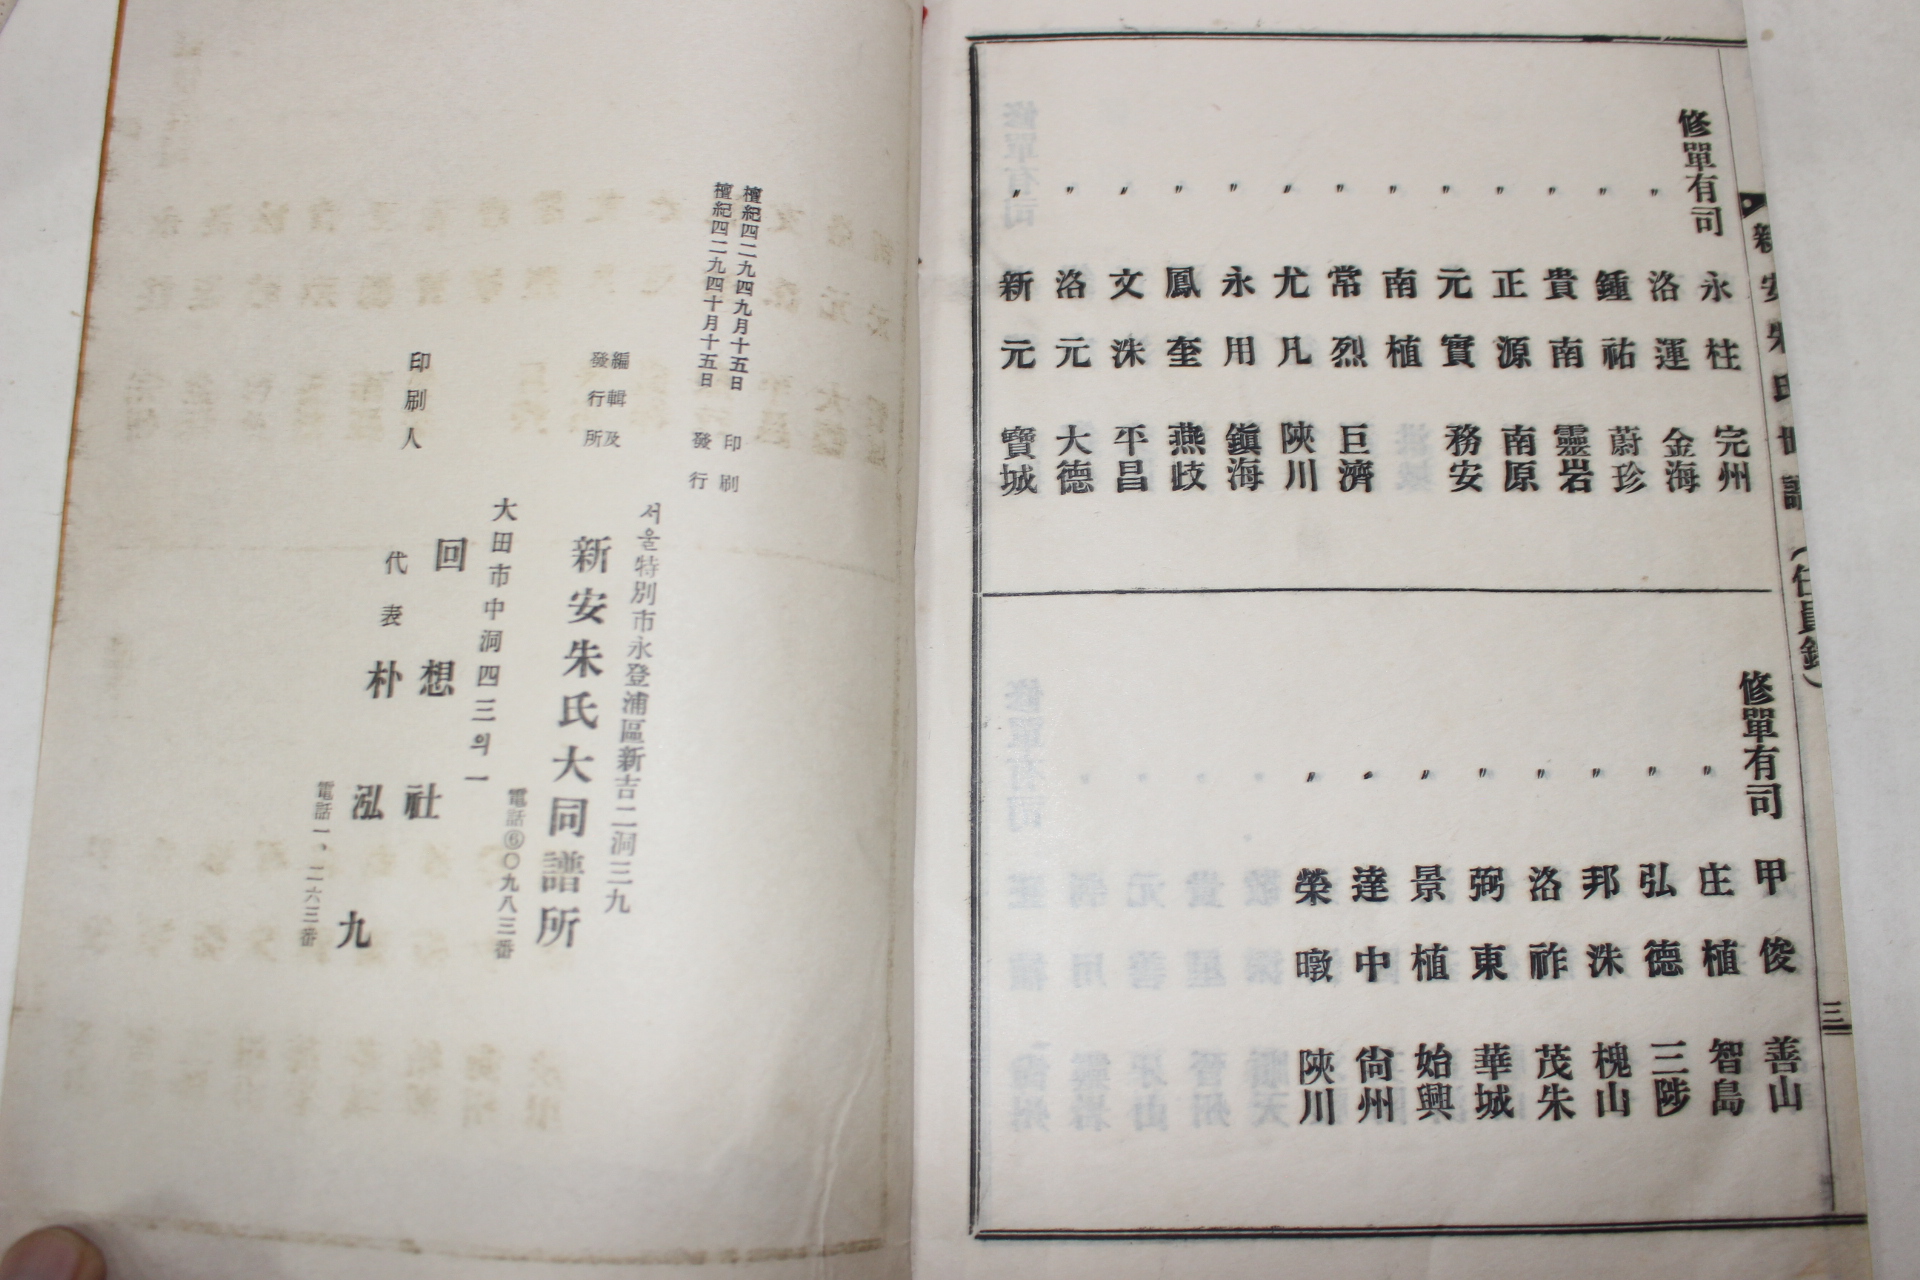 新安朱氏世譜 (任員錄) 三
修單有司 永柱 完州
〃 洛運 金海
〃 鍾祐 蔚珍
〃 貴南 靈岩
〃 正源 南原
〃 元實 務安
〃 南植
〃 常烈 巨濟
〃 尤凡 陜川
〃 永用 鎭海
〃 鳳奎 燕岐
〃 文洙 平昌
〃 洛元 大德
〃 新元 寶城
修單有司 甲俊 善山
〃 庄植 智島
〃 弘德 三陟
〃 邦洙 槐山
〃 洛祚 茂朱
〃 弼東 華城
〃 景植 始興
〃 達中 尙州
〃 榮暾 陜川
檀紀四二九四九月十五日 印刷
檀紀四二九四十月十五日 發行
서울特別市永登浦區新吉二洞三九
編輯及
發行所
新安朱氏大同譜所
電話⑥〇九八三番
大田市中洞四三의一
印刷人
回想社
代表 朴泓九
電話一、二六三番